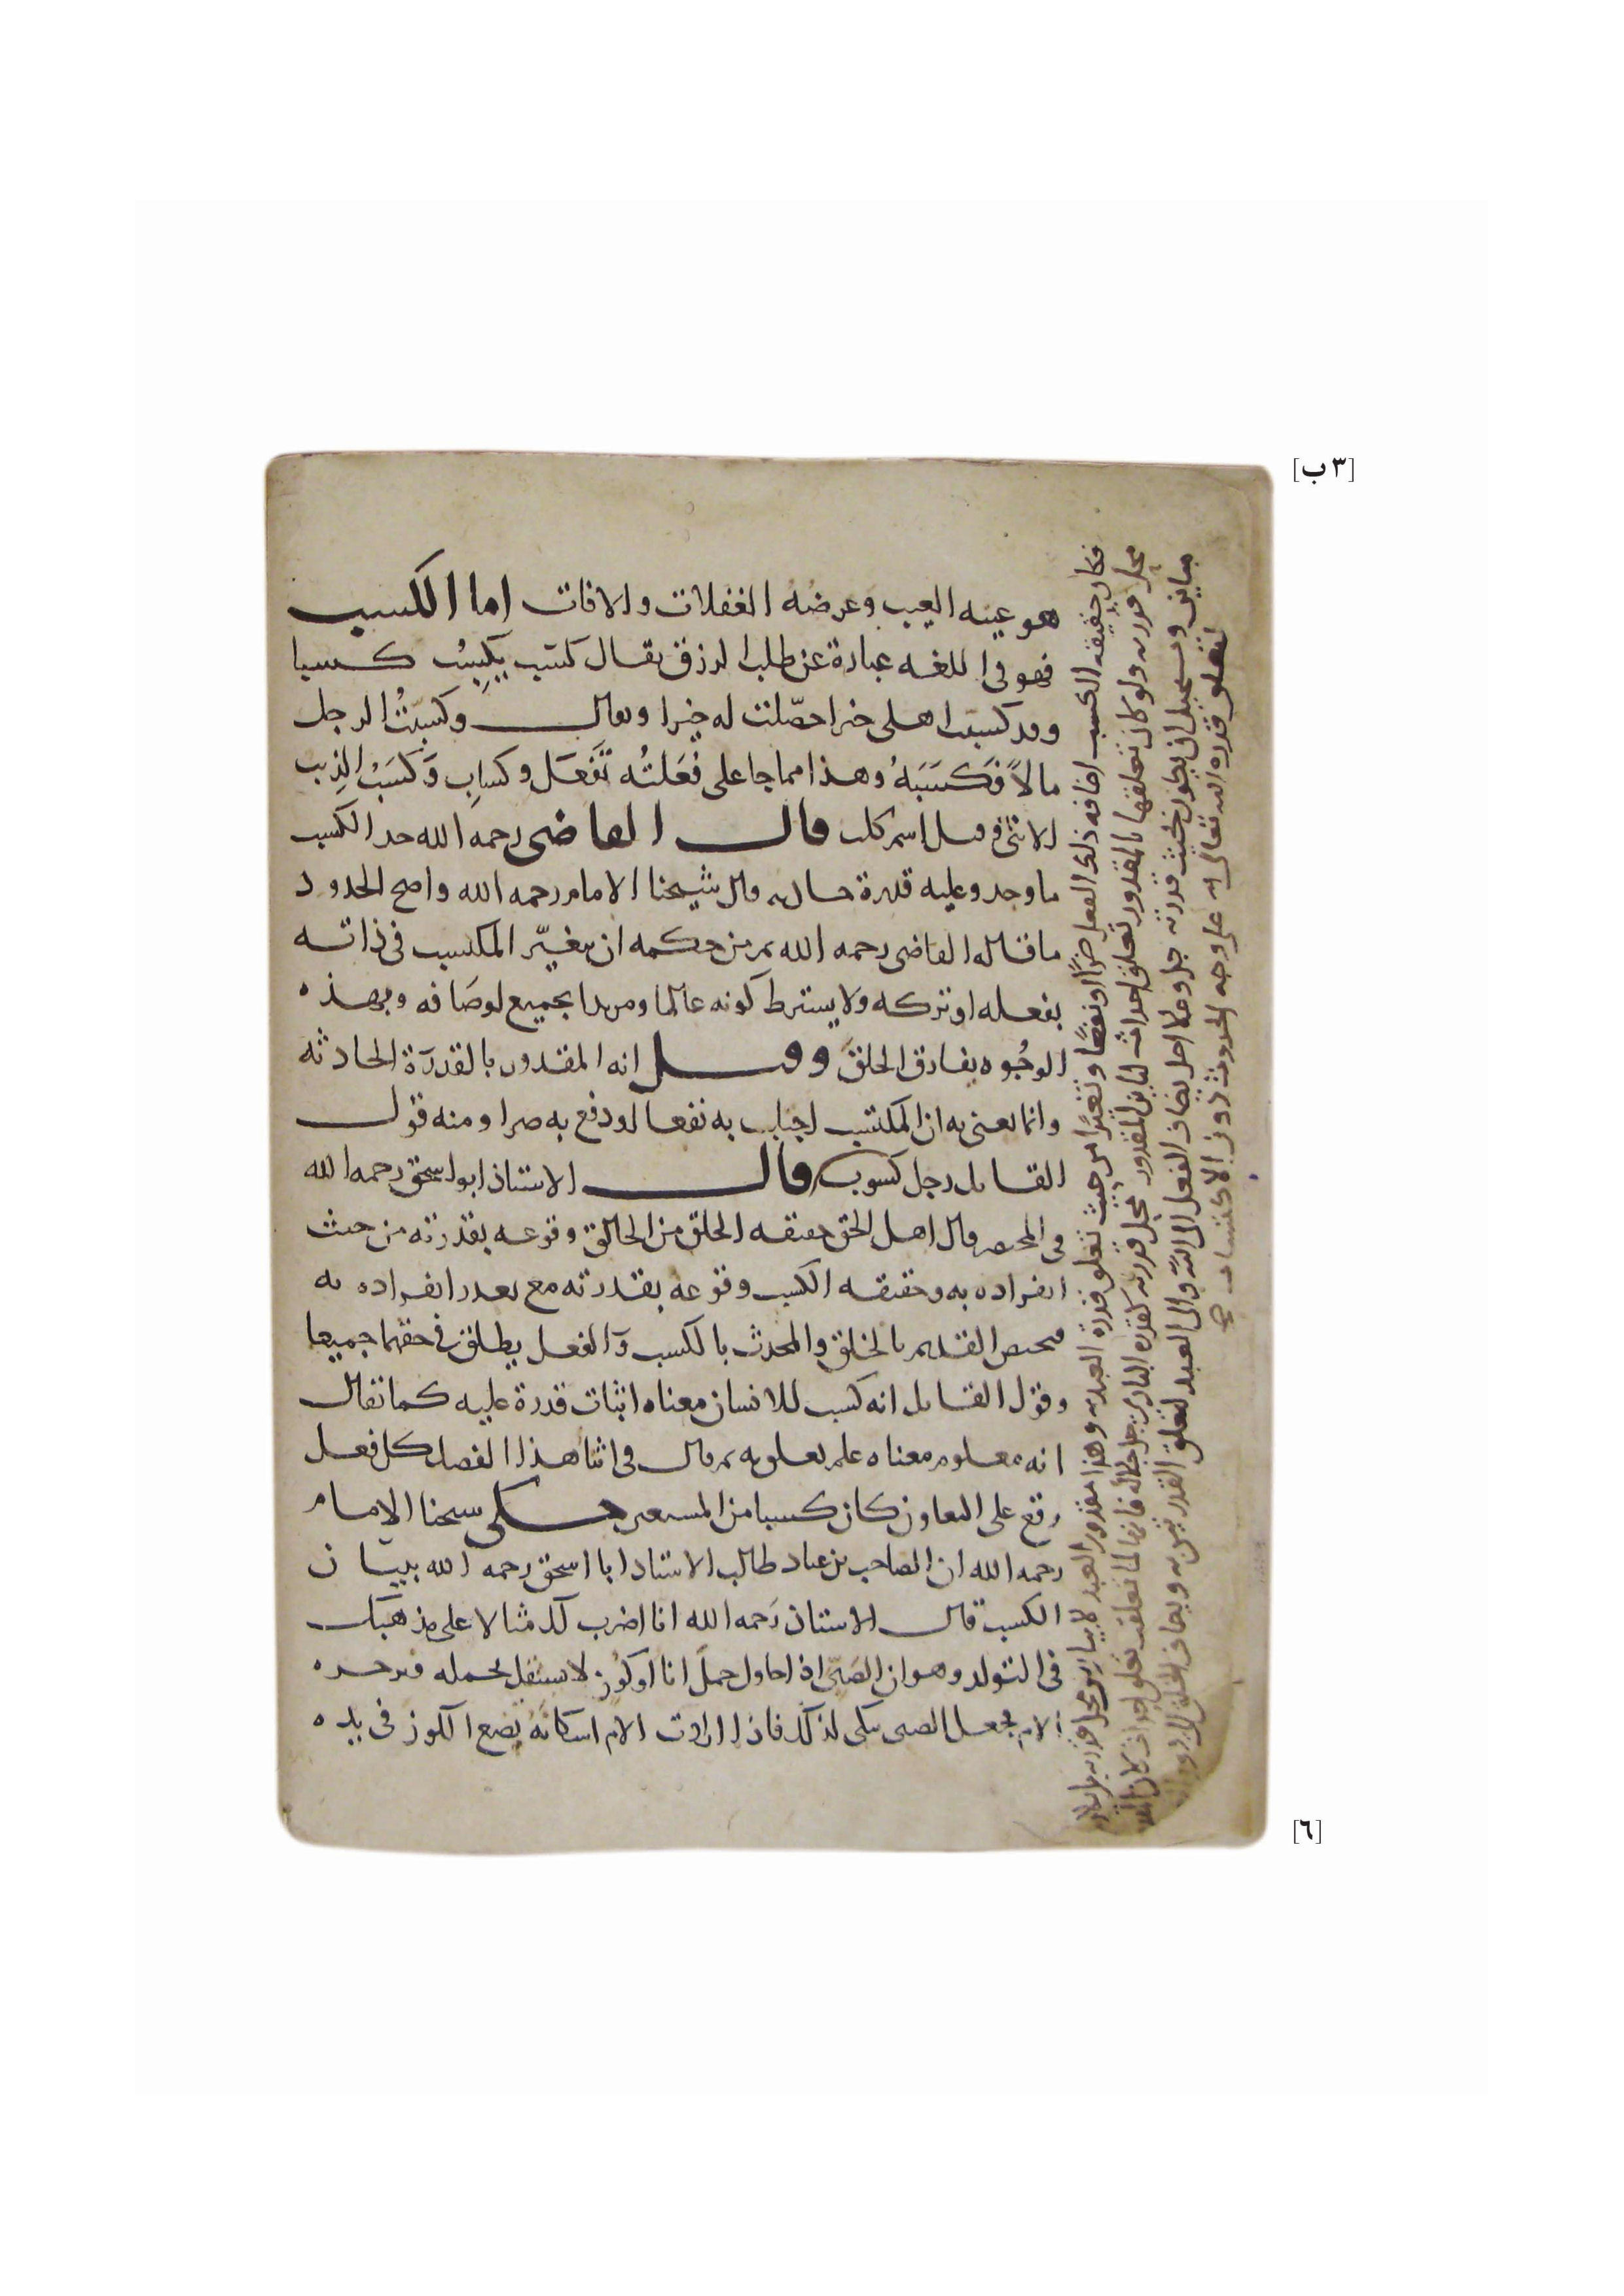 [٣ ب]
هو عينه العيب وعرضه الغفلات والافات اما الكسب
فهو في اللغه عبارة عن طلب الرزق يقال كسَب يكسِبُ كسبا
وقد كسبت اهلي خيرا حصّلت له خيرا ويقال وكسبتُ الرجل
مالاً فكَسَبَهُ وهذا مما جا على فَعَلتُه تفَعَل وكسابِ وكَسَبْ الذيب
الانثى قيل اسم كلب قال القاضى رحمه الله حد الكسب
ما وجد وعليه قدرة حادثه قال شيخنا الامام رحمه الله واصح الحدود
ما قاله القاضى رحمه الله ثم من حكمه ان يتغيّر المكتسب في ذاته
بفعله او تركه ولا يشترط كونه عالما ومريدا بجميع اوصافه وبهذه
الوجُوه يفارق الخلقَ وقيل انه المقدور بالقدرَة الحادثه
وانما يعنى به ان المكتسب اجتلب به نفعا او دفع به ضرا ومنه قول
القايل رجل كسوب وقال الاستاذ ابو اسحق رحمه الله
في المختصر قال اهل الحق حقيقه الخلق من الخالق وقوعه بقدرته من حيث
انفراده به وحقيقه الكسب وقوعه بقدرته مع تعذر انفراده به
فيختص القديم بالخلق والمحدث بالكسب وَالفعل يطلق في حقهما جميعا
وقول القايل انه كسب للانسان معناه اثبات قدرة عليه كما يقال
انه معلوم معناه علم تعلق به ثم قال في اثنا هذا الفصل كل فعل
وقع على التعاون كان كسبا من المستعين حكى شيخنا الامام
رحمه الله ان الصاحب بن عباد طالب الاستاد ابا اسحق رحمه الله ببيان
الكسب قال الاستاذ رَحمه الله انا اضرب لك مثالا على مذهبك
في التولد وهو ان الصَبيّ اذا حاول حملَ اناٍ او كُوز لا يستقل بحمله
الام فجعل الصبى يبكى لذلك فاذا ارادت الام اسكاتَهُ تضع الكوز في يده
فكان حقيقه الكسب اضافه ذلك الفعل ضرًا او نفعًا من حيث تعلق قدرة العبد به وهذا مقدور العبد لا يباين محل قدرته
محل قدرته ولو كان تعلقها بالمقدور تعلق احداث لباين المقدور محل قدرته كقدره البارى جل جلاله فانها لما تعلقت تعلق احداث كان
مباين ويستحيل ان يكون بحيث قدرته جل وعلا يضاف الفعل الى الله والى العبد لتعلق القدرتين به ويضاف الخلق
لتعلق قدره الله تعالى به على وجه الحدوث دون الاكتساب
[٦]